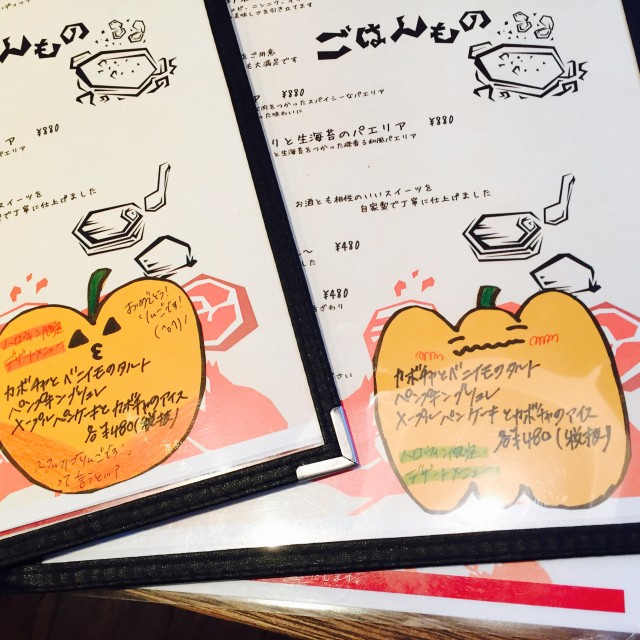 んもの
¥880
パエリア
スイーツを
で丁寧に仕上げました
おめでとう!
りんごです!
(^o^)/
ハロウィン限定
デザートメニュー
カボチャとベニイモのタルト
パンプキンブリュレ
メープルパンケーキとカボチャのアイス
各¥480(税抜)
ごはんもの
美味しさを引き立てます
ご用意
も大満足です
¥880
肉をつかったスパイシーなパエリア
った味わいに
りと生海苔のパエリア ¥880
と生海苔をつかった磯香る和風パエリア
お酒とも相性のいいスイーツを
自家製で丁寧に仕上げました
¥480
した
¥480
ざわり
さい
カボチャとベニイモのタルト
パンプキンブリュレ
メープルパンケーキとカボチャのアイス
各¥480(税抜)
ハロウィン限定
デザートメニュー
します。